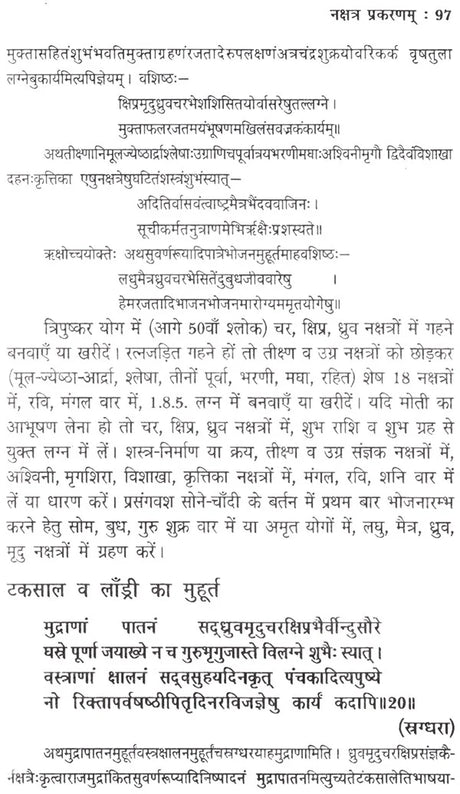 नक्षत्र प्रकरणम् : 97
मुक्तासहितंशुभंभवतिमुक्ताग्रहणंरजतादेरुपलक्षणंअत्रचंद्रशुक्रयोवरिकर्क वृषतुला
लग्नेबुकार्यमित्यपिज्ञेयम् । वशिष्ठः—
क्षिप्रमृदुध्रुवचरभेशशिसितयोर्वासरेषुतल्लग्ने ।
मुक्ताफलरजतमयंभूषणमखिलंसवज्रकंकार्यम्॥
अथतीक्ष्णानिमूलज्येष्ठार्द्राश्लेषाःउग्राणिचपूर्वात्रयभरणीमघाःअश्विनीमृगौ द्विदैवंविशाखा
दहनःकृत्तिका एषुनक्षत्रेषुघटितंशस्त्रंशुभंस्यात्—
अदितिर्वासवंत्वाष्ट्रमैत्रभैंदववाजिनः ।
सूचीकर्मतनुत्राणमेभिर्ऋक्षैःप्रशस्यते॥
ऋक्षोच्चयोक्तेः अथसुवर्णरूयादिपात्रेभोजनमुहूर्तमाहवशिष्ठः—
लघुमैत्रध्रुवचरभेसितेंदुबुधजीववारेषु ।
हेमरजतादिभाजनभोजनमारोग्यममृतयोगेषु॥
त्रिपुष्कर योग में (आगे 50वाँ श्लोक) चर, क्षिप्र, ध्रुव नक्षत्रों में गहने
बनवाएँ या खरीदें। रत्नजड़ित गहने हों तो तीक्ष्ण व उग्र नक्षत्रों को छोड़कर
(मूल-ज्येष्ठा-आर्द्रा, श्लेषा, तीनों पूर्वा, भरणी, मघा, रहित) शेष 18 नक्षत्रों
में, रवि, मंगल वार में, 1.8.5. लग्न में बनवाएँ या खरीदें। यदि मोती का
आभूषण लेना हो तो चर, क्षिप्र, ध्रुव नक्षत्रों में, शुभ राशि व शुभ ग्रह से
युक्त लग्न में लें। शस्त्र-निर्माण या क्रय, तीक्ष्ण व उग्र संज्ञक नक्षत्रों में,
अश्विनी, मृगशिरा, विशाखा, कृत्तिका नक्षत्रों में, मंगल, रवि, शनि वार में
लें या धारण करें। प्रसंगवश सोने-चाँदी के बर्तन में प्रथम बार भोजनारम्भ
करने हेतु सोम, बुध, गुरु शुक्र वार में या अमृत योगों में, लघु, मैत्र, ध्रुव,
मृदु नक्षत्रों में ग्रहण करें।
टकसाल व लाँड्री का मुहूर्त
मुद्राणां पातनं सद्ध्रुवमृदुचरक्षिप्रभैर्वीन्दुसौरे
घस्रे पूर्णा जयाख्ये न च गुरुभृगुजास्ते विलग्ने शुभैः स्यात्।
वस्त्राणां क्षालनं सद्वसुहयदिनकृत् पंचकादित्यपुष्ये
नो रिक्तापर्वषष्ठीपितृदिनरविजज्ञेषु कार्यं कदापि॥20॥
(स्रग्धरा)
अथमुद्रापातनमुहूर्तवस्त्रक्षालनमुहूर्तंचस्रग्धरयाहमुद्राणामिति। ध्रुवमृदुचरक्षिप्रसंज्ञकै-
र्नक्षत्रैःकृत्वाराजमुद्रांकितसुवर्णरूप्यादिनिष्पादनं मुद्रापातनमित्युच्यतेटंकसालेतिभाषया-